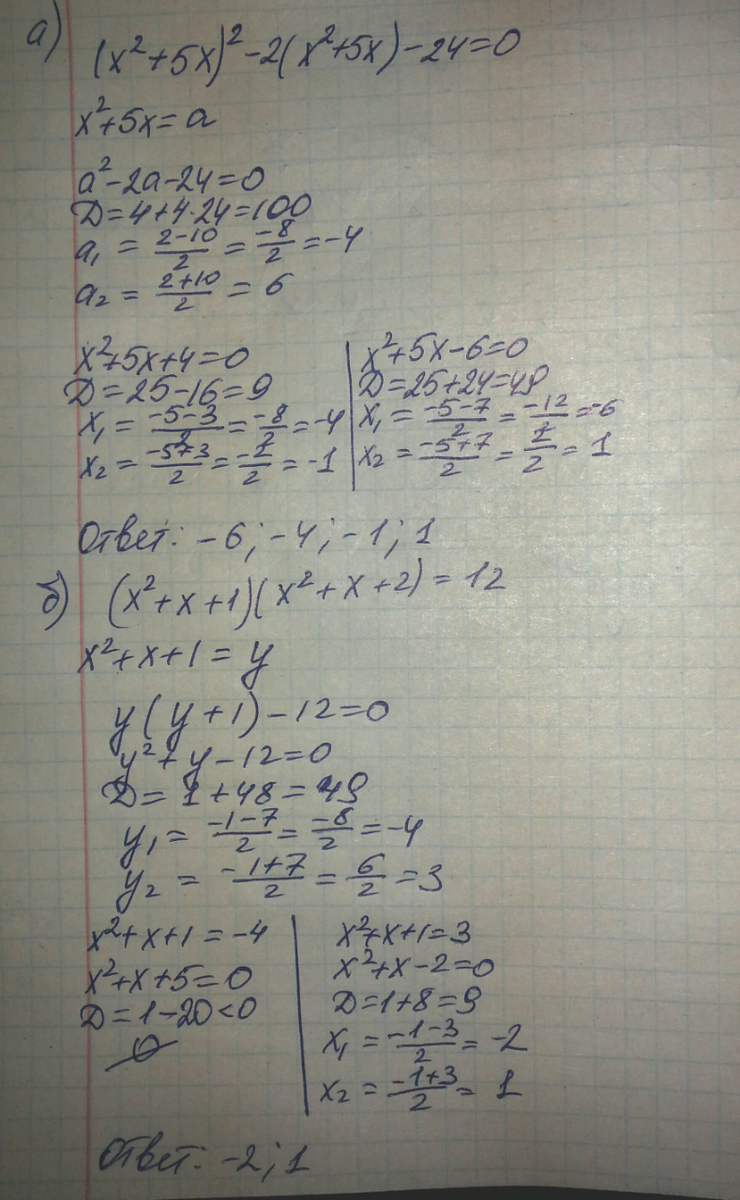 а) (x²+5x)²-2(x²+5x)-24=0
x²+5x=a
a²-2a-24=0
D=4+4·24=100
a₁ = (2-10)/2 = -8/2 = -4
a₂ = (2+10)/2 = 6
x²+5x+4=0
D=25-16=9
x₁ = (-5-3)/2 = -8/2 = -4
x₂ = (-5+3)/2 = -2/2 = -1
x²+5x-6=0
D=25+24=49
x₁ = (-5-7)/2 = -12/2 = -6
x₂ = (-5+7)/2 = 2/2 = 1
Ответ: -6; -4; -1; 1
б) (x²+x+1)(x²+x+2) = 12
x²+x+1 = y
y(y+1)-12=0
y²+y-12=0
D= 1+48=49
y₁ = (-1-7)/2 = -8/2 = -4
y₂ = (-1+7)/2 = 6/2 = 3
x²+x+1=-4
x²+x+5=0
D=1-20<0
∅
x²+x+1=3
x²+x-2=0
D=1+8=9
x₁ = (-1-3)/2 = -2
x₂ = (-1+3)/2 = 1
Ответ: -2; 1